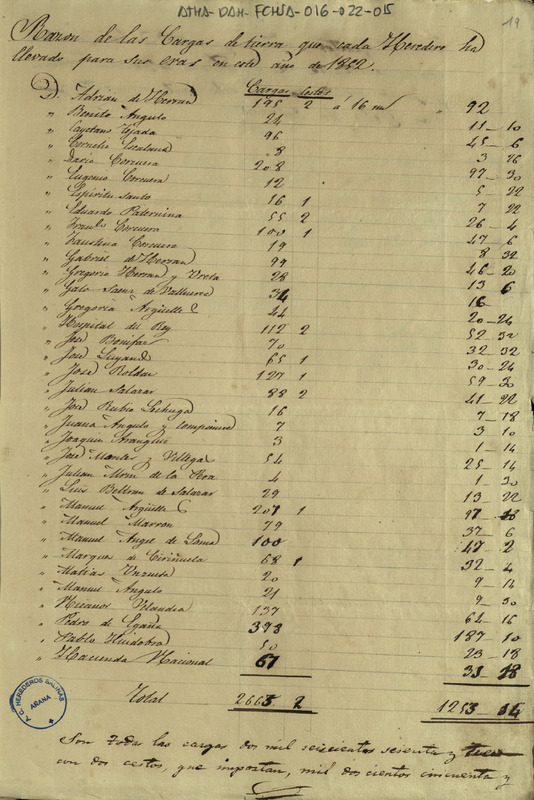 ATHA-DAH-FCHSA-016-022-015
19
Razon de las Cargas de tierra que cada Heredero ha
llevado para sus eras en este año de 1852.
Cargas Cestos
D. Adrian de Herran 195 2 á 16 mrs " 92
" Benito Angulo 24 11-10
" Cayetano Tejada 96 45-6
" Cornelio Escalona 8 3 26
" Daria Corcuera 208 97-30
" Eugenio Corcuera 12 5-22
" Espiritu Santo 16 1 7 22
" Eduardo Paternina 55 2 26-4
" Franco Corcuera 100 1 47-6
" Faustina Corcuera 19 8 32
" Gabriel de Herran 99 46-20
" Gregorio Herran y Ureta 28 13 6
" Galo Saenz de Valluerca 34 16-
" Gregorio Argüelle 44 20-24
" Hospital del Rey 112 2 52 32
" José Bonifaz 70 32 32
" José Luyando 65 1 30-24
" José Roldan 127 1 59-30
" Julian Salazar 88 2 41-22
" José Rubio Lechuga 16 7-18
" Juana Angulo y compañia 7 3 10
" Joaquin Aranguiz 3 1-14
" José Montes y Villegas 54 25-14
" Julian Mozu de la Roa 4 1-30
" Luis Beltran de Salazar 29 13 22
" Manuel Argüelle 207 1 97
" Manuel Marron 79 37-6
" Manuel Angel de Soma 100 47-2
" Marques de Ciriñuela 68 1 32-4
" Matias Unzueta 20 9-14
" Manuel Angulo 21 9-30
" Nicanor Velandia 137 64-16
" Pedro de Egaña 398 187-10
" Pablo Huidobro 50 23-18
" Hacienda Nacional 67 31-18
Total 2663 2 1253-14
Son todas las cargas dos mil seiscientos sesenta y tres
con dos cestos, que importan, mil dos cientos cincuenta y
A.C. HEREDEROS SALINAS
AÑANA